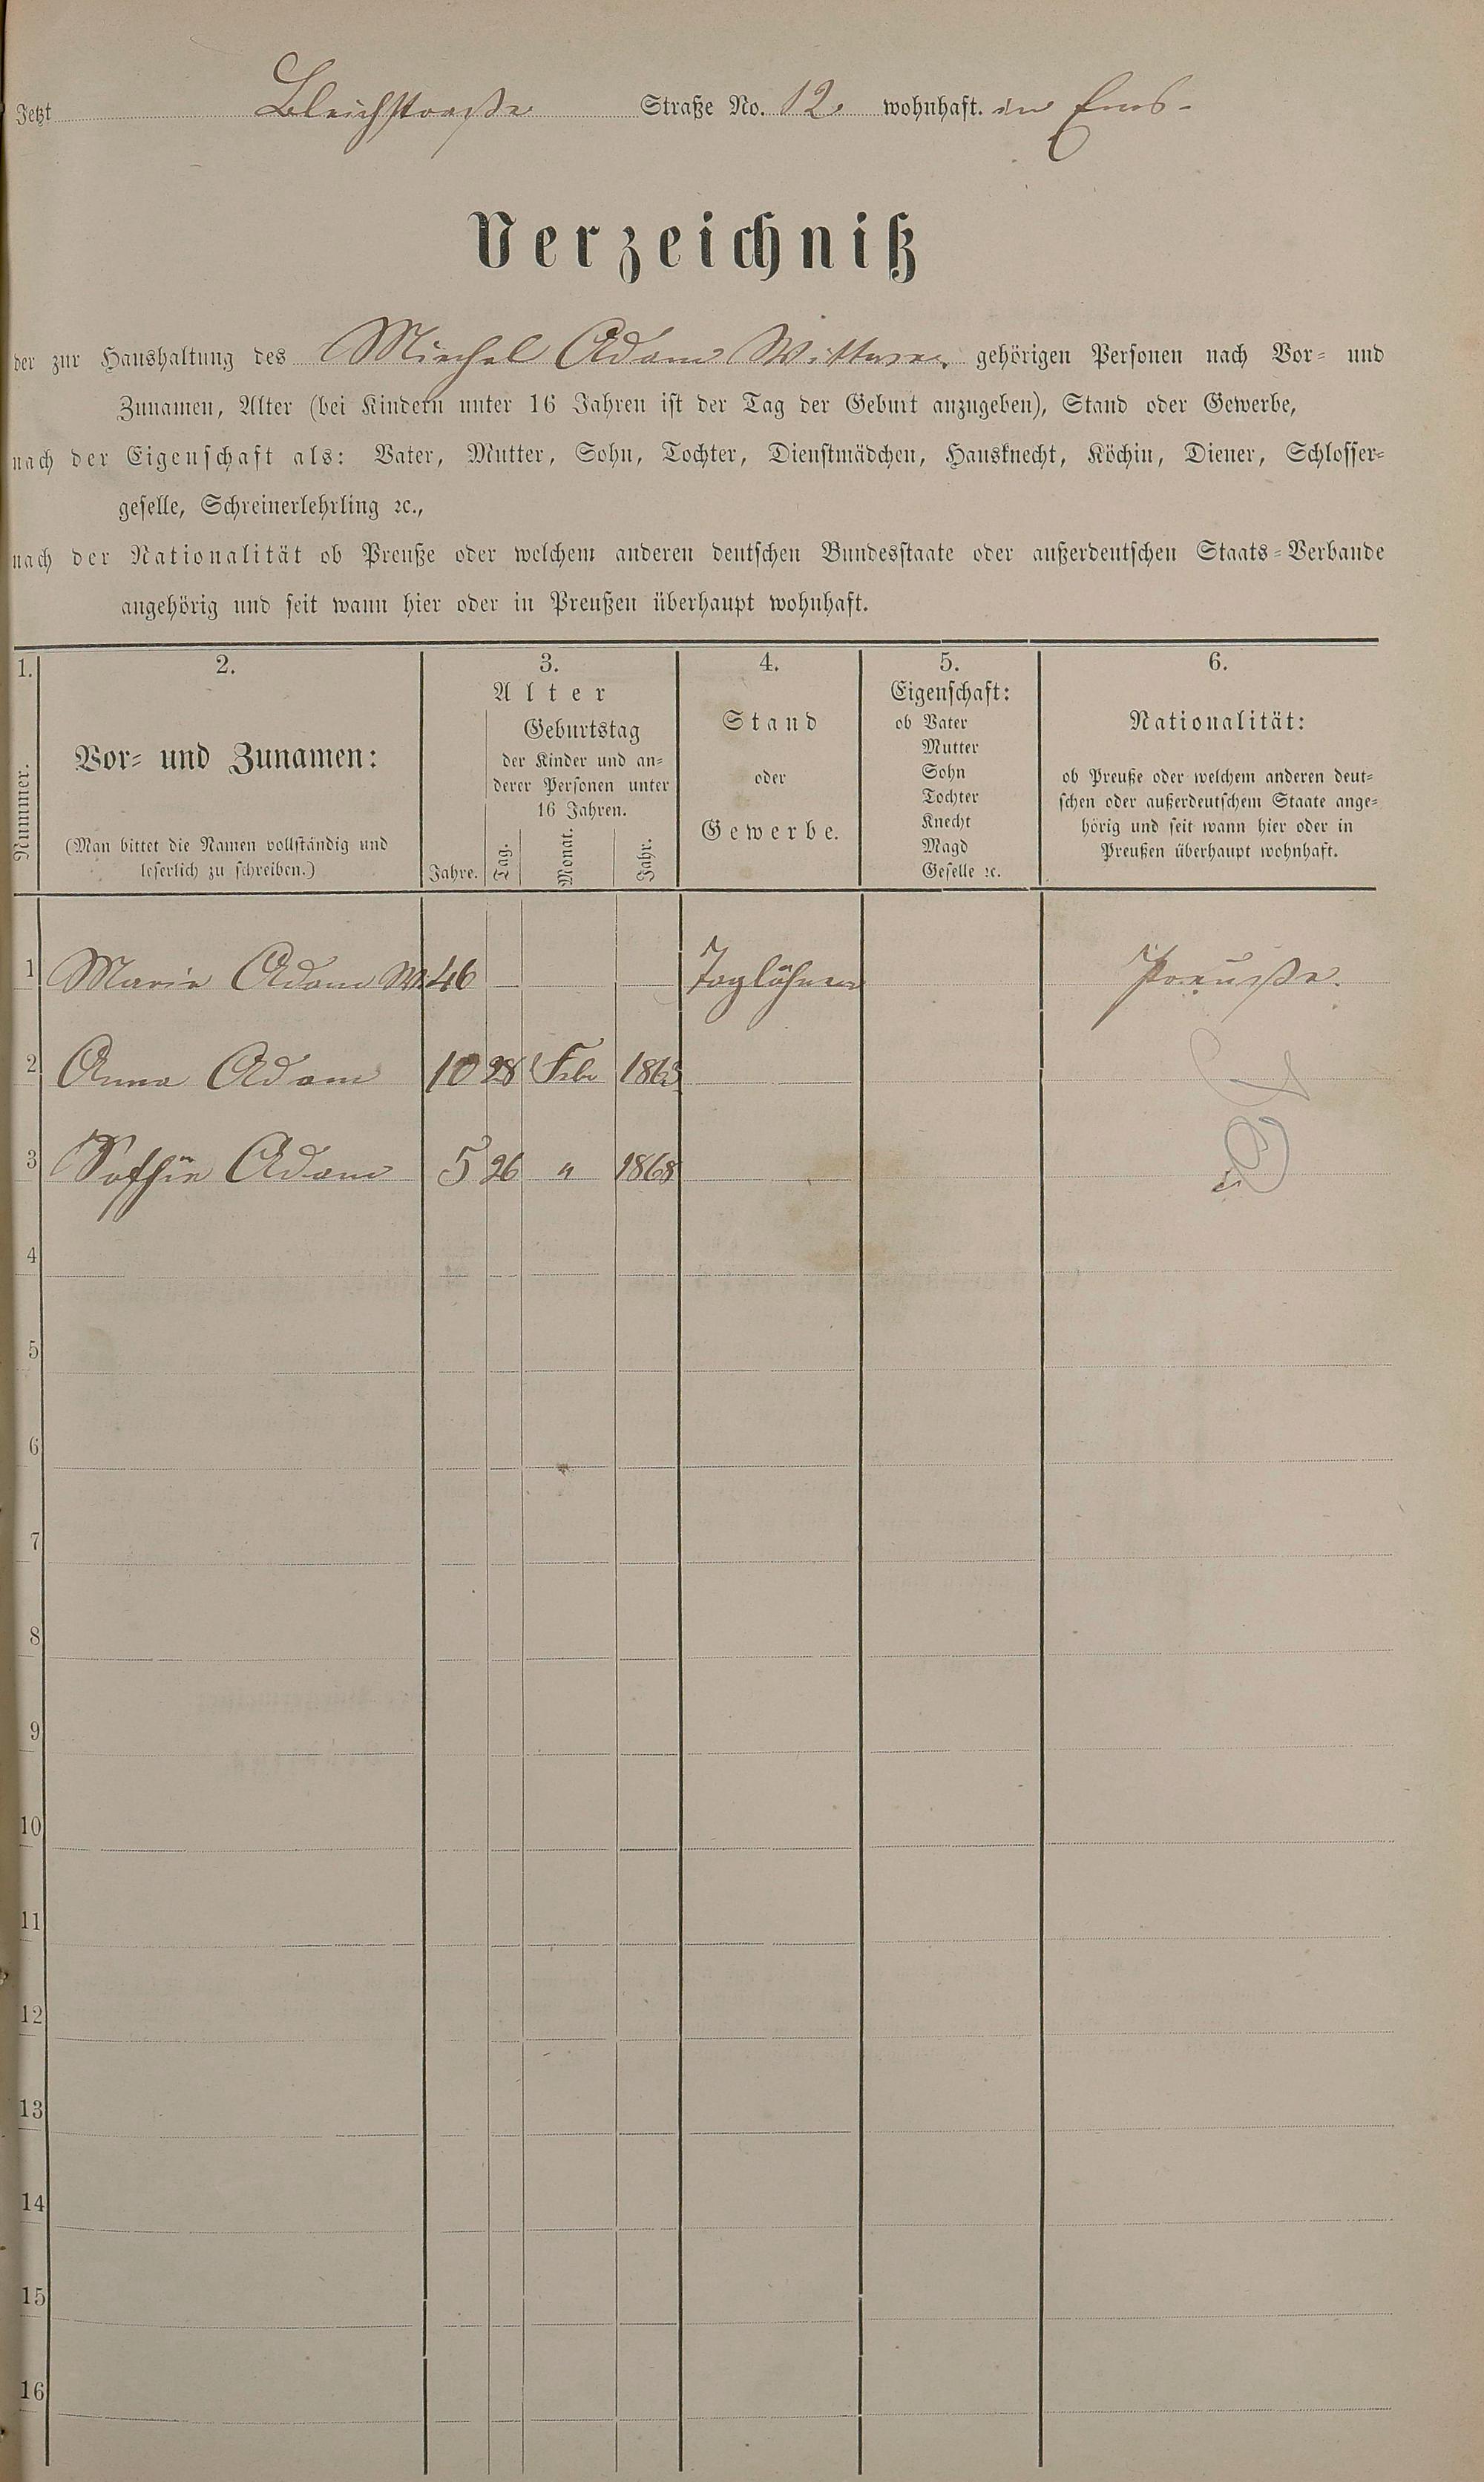 Jetzt Bleichstraße Straße No. 12. wohnhaft. in Ems-
Verzeichniß
der zur Haushaltung des Miechel Adam Wittwe. gehörigen Personen nach Vor- und
Zunamen, Alter (bei Kindern unter 16 Jahren ist der Tag der Geburt anzugeben), Stand oder Gewerbe,
nach der Eigenschaft als: Vater, Mutter, Sohn, Tochter, Dienstmädchen, Hausknecht, Köchin, Diener, Schlosser-
geselle, Schreinerlehrling ꝛc.,
nach der Nationalität ob Preuße oder welchem anderen deutschen Bundesstaate oder außerdeutschen Staats-Verbande
angehörig und seit wann hier oder in Preußen überhaupt wohnhaft.
1. 2. 3. 4. 5. 6.
Nummer.
Vor- und Zunamen:
(Man bittet die Namen vollständig und
leserlich zu schreiben.)
Alter
Geburtstag
der Kinder und an-
derer Personen unter
16 Jahren.
Jahre. Tag. Monat. Jahr.
Stand
oder
Gewerbe.
Eigenschaft:
ob Vater
Mutter
Sohn
Tochter
Knecht
Magd
Geselle ꝛc.
Nationalität:
ob Preuße oder welchem anderen deut-
schen oder außerdeutschem Staate ange-
hörig und seit wann hier oder in
Preußen überhaupt wohnhaft.
1 Marie Adam W. 46 Taglöhner Preusse.
2 Anna Adam 10 28 Feb 1863
3 Soffie Adam 5 26 " 1868
4
5
6
7
8
9
10
11
12
13
14
15
16